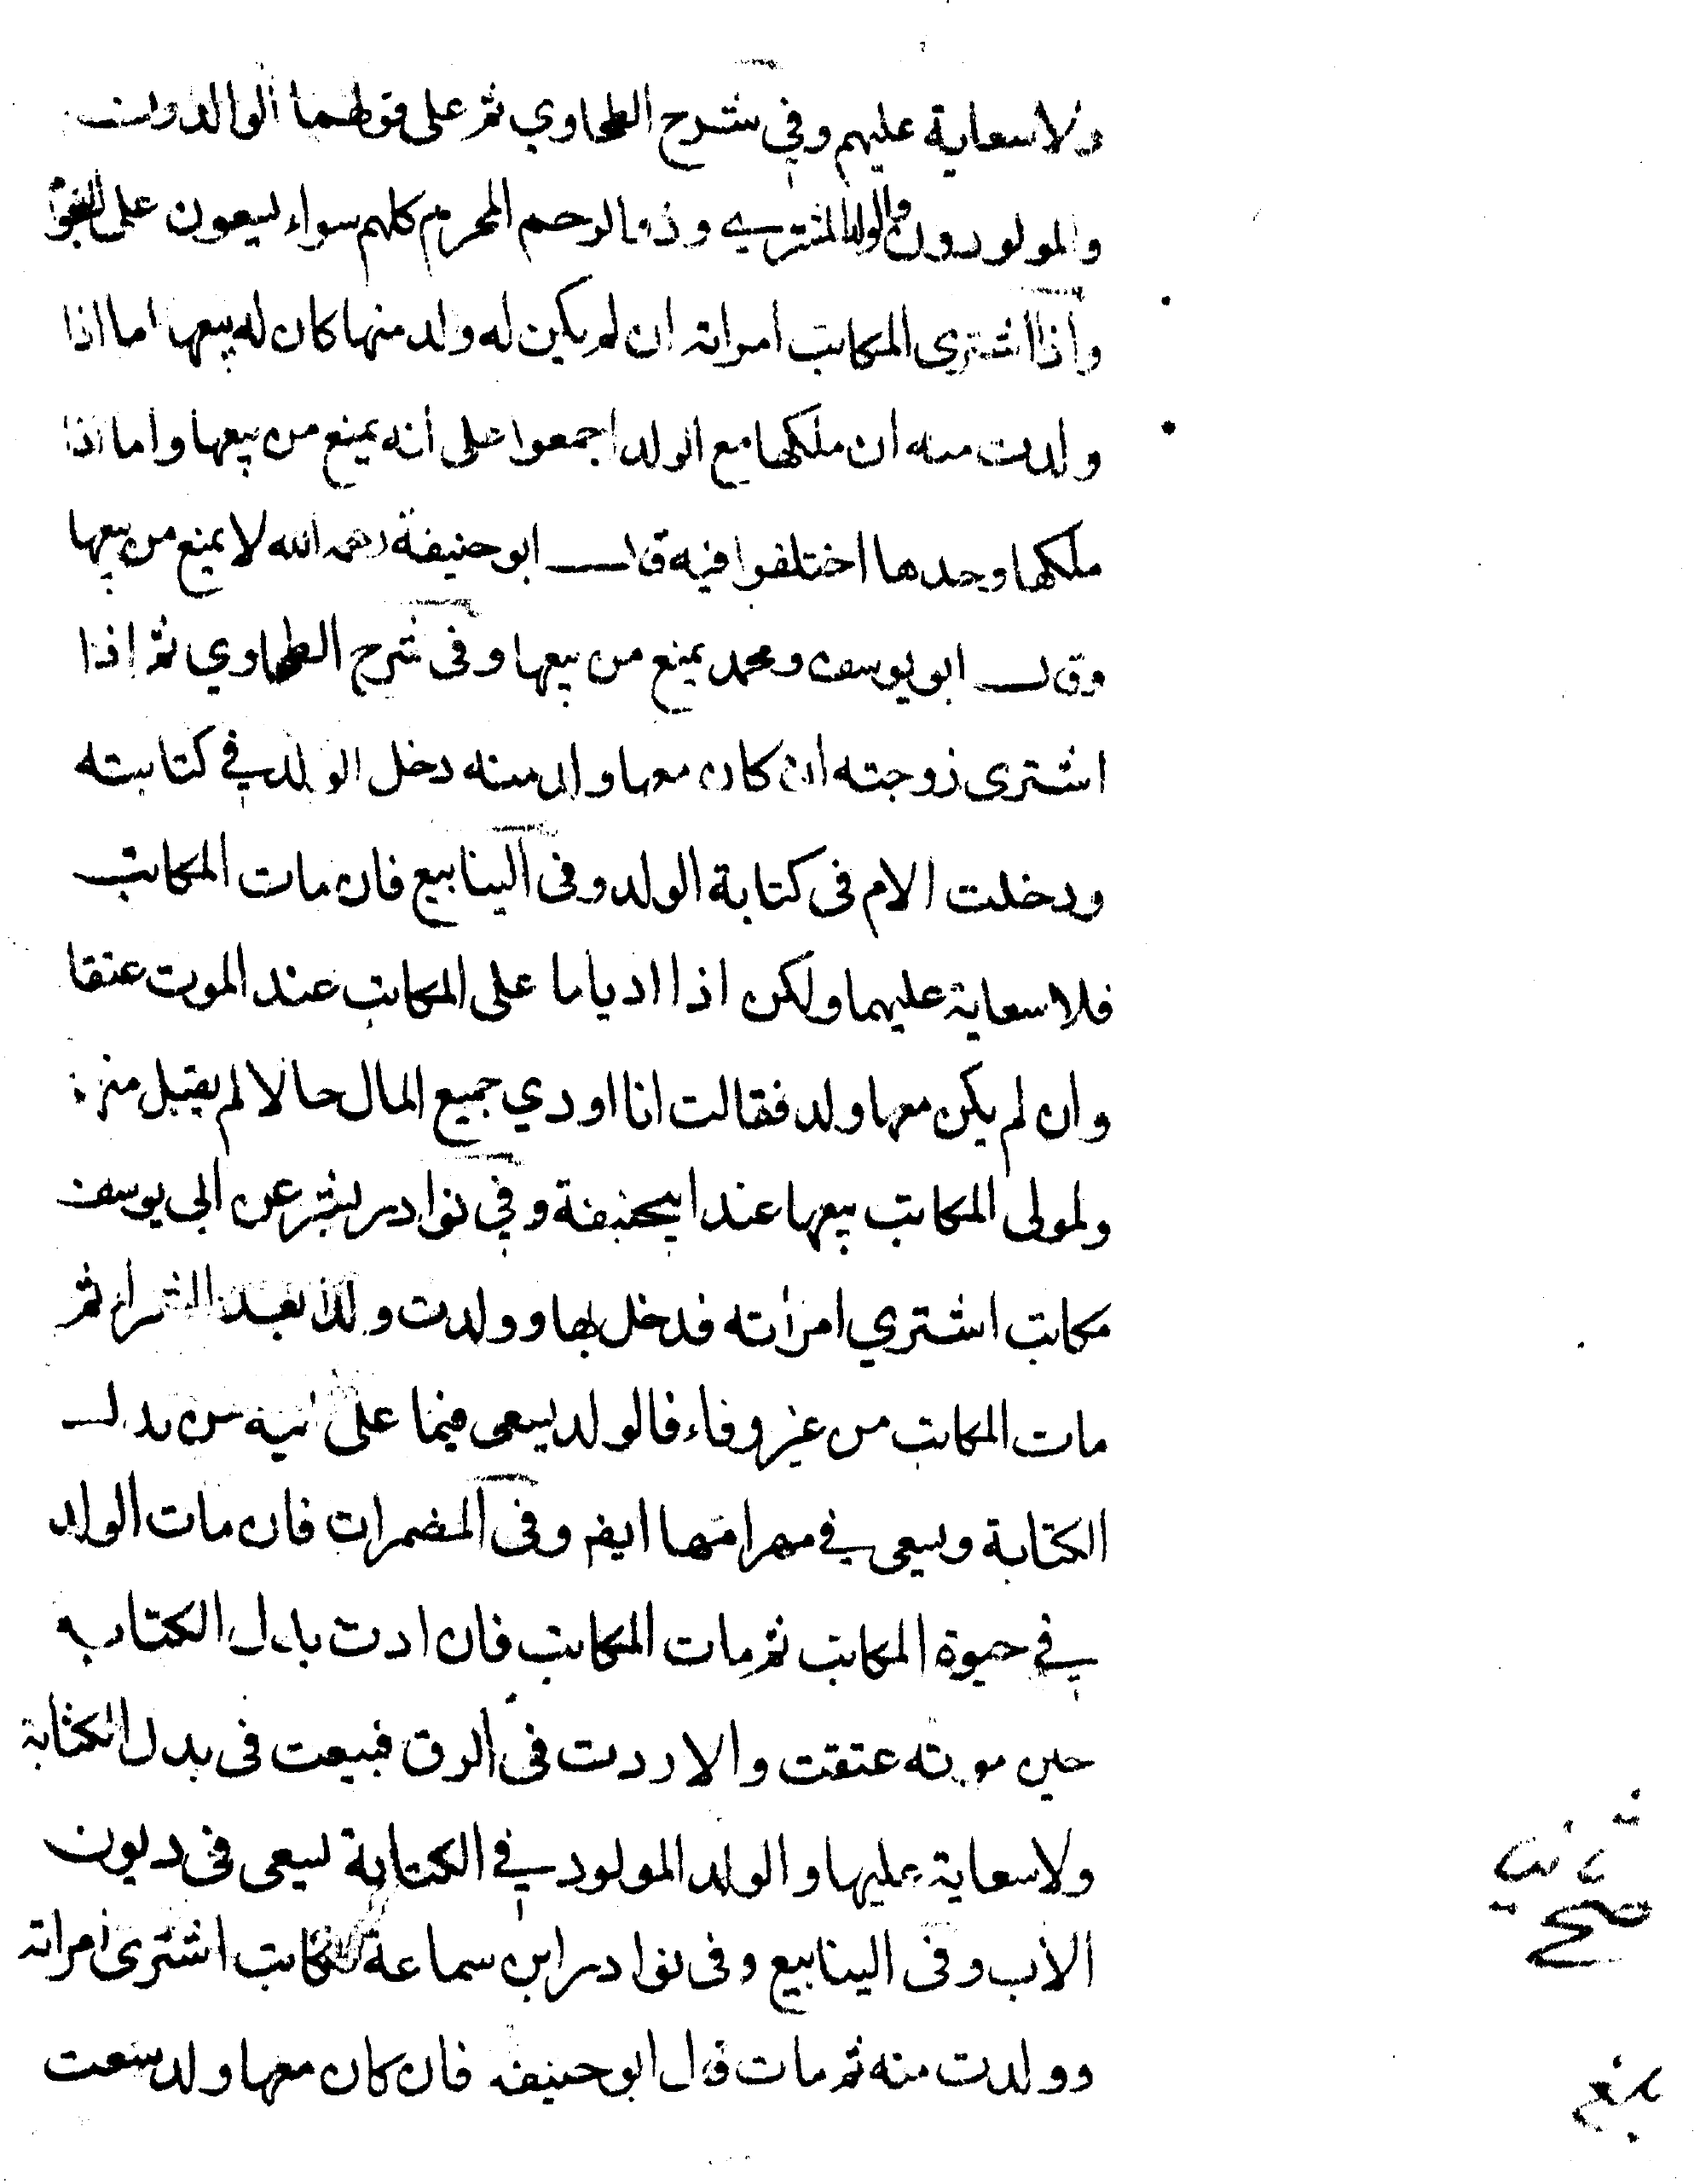 ولا سعاية عليهم وفي شرح الطحاوي ثم على قولهما الوالدون
والمولودون والولد المشترى وذو الرحم المحرم كلهم سواء يسعون على النجوم
واذا اشترى المكاتب امراته ان لم يكن له ولد منها كان له بيعها اما اذا
ولدت منه ان ملكها مع الولد اجمعوا على انه يمنع من بيعها واما اذا
ملكها وحدها اختلفوا فيه قال ابو حنيفة رحمه الله لا يمنع من بيعها
وقال ابو يوسف ومحمد يمنع من بيعها وفى شرح الطحاوي ثم اذا
اشترى زوجته ان كان معها ولد منه دخل الولد في كتابته
ودخلت الام فى كتابة الولد وفى الينابيع فان مات المكاتب
فلا سعاية عليهما ولكن اذا اديا ما على المكاتب عند الموت عتقا
وان لم يكن معها ولد فقالت انا اودي جميع المال حالا لم يقبل منها
ولمولى المكاتب بيعها عند ابيحنيفة وفي نوادر بشر عن ابي يوسف
مكاتب اشتري امرأته فدخل بها وولدت ولدا بعد الشراء ثم
مات المكاتب من غير وفاء فالولد يسعى فيما على ابيه من بدل
الكتابة ويسعى في مهر امها ايضا وفى المضمرات فان مات الولد
في حيوة المكاتب ثم مات المكاتب فان ادت بدل الكتابه
حين موته عتقت والا ردت فى الرق فبيعت فى بدل الكتابة
ولا سعاية عليها والولد المولود في الكتابة يسعى فى ديون
الاب وفى الينابيع وفى نوادر ابن سماعة مكاتب اشترى امراته
وولدت منه ثم مات قال ابو حنيفه فان كان معها ولد سعت
صح